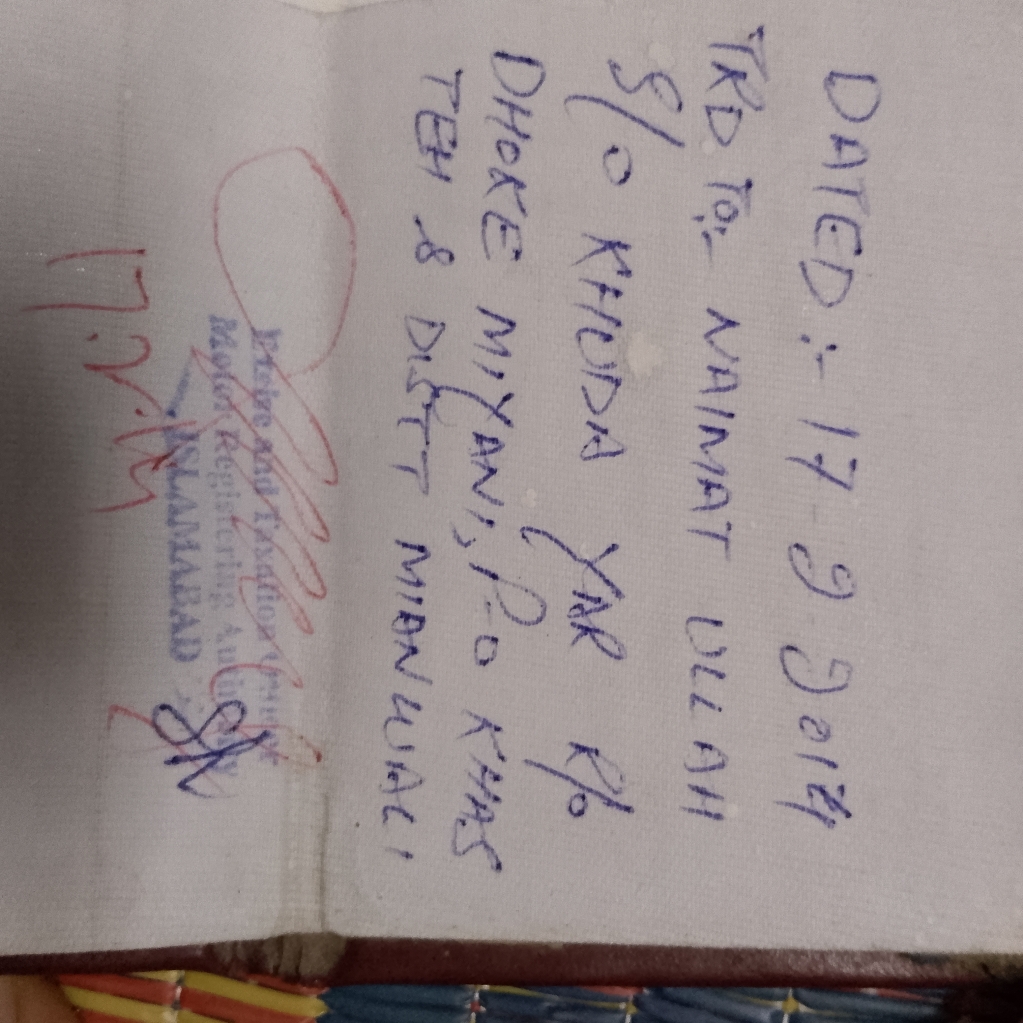 DATED :- 17-2-2014
TRD TO:- NAIMAT ULLAH
S/O KHUDA YAR R/O
DHOKE MIYANI, P-O KHAS
TEH & DISTT MIANWALI
Excise and Taxation
Motor Registering Authority
ISLAMABAD
17.2.14